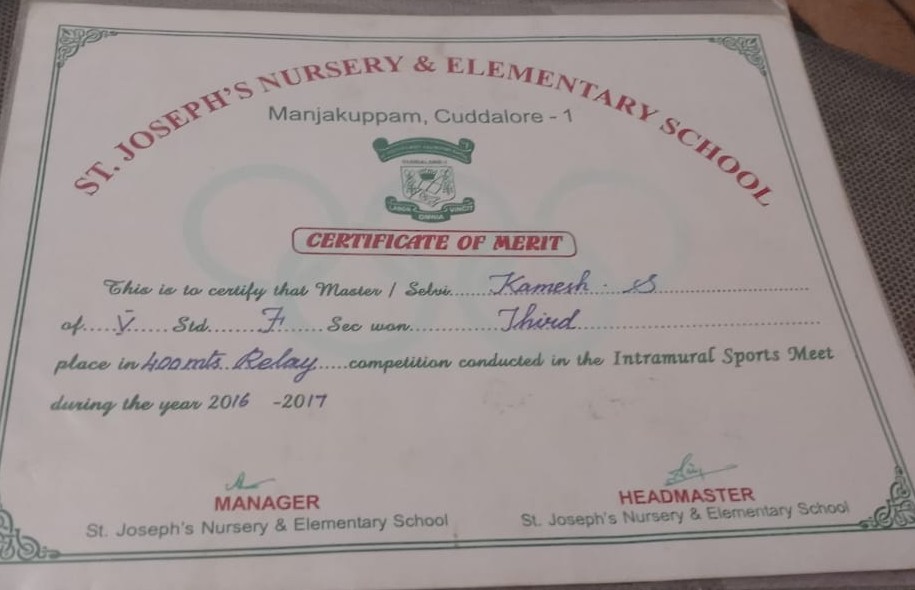 ST. JOSEPH'S NURSERY & ELEMENTARY SCHOOL
Manjakuppam, Cuddalore - 1
LABOR OMNIA VINCIT
CERTIFICATE OF MERIT
This is to certify that Master / Selvi......Kamesh . S..............................
of.....V......Std.......F.......Sec won...............Third..............................................
place in 400mts..Relay.....competition conducted in the Intramural Sports Meet
during the year 2016 -2017
MANAGER
St. Joseph's Nursery & Elementary School
HEADMASTER
St. Joseph's Nursery & Elementary School